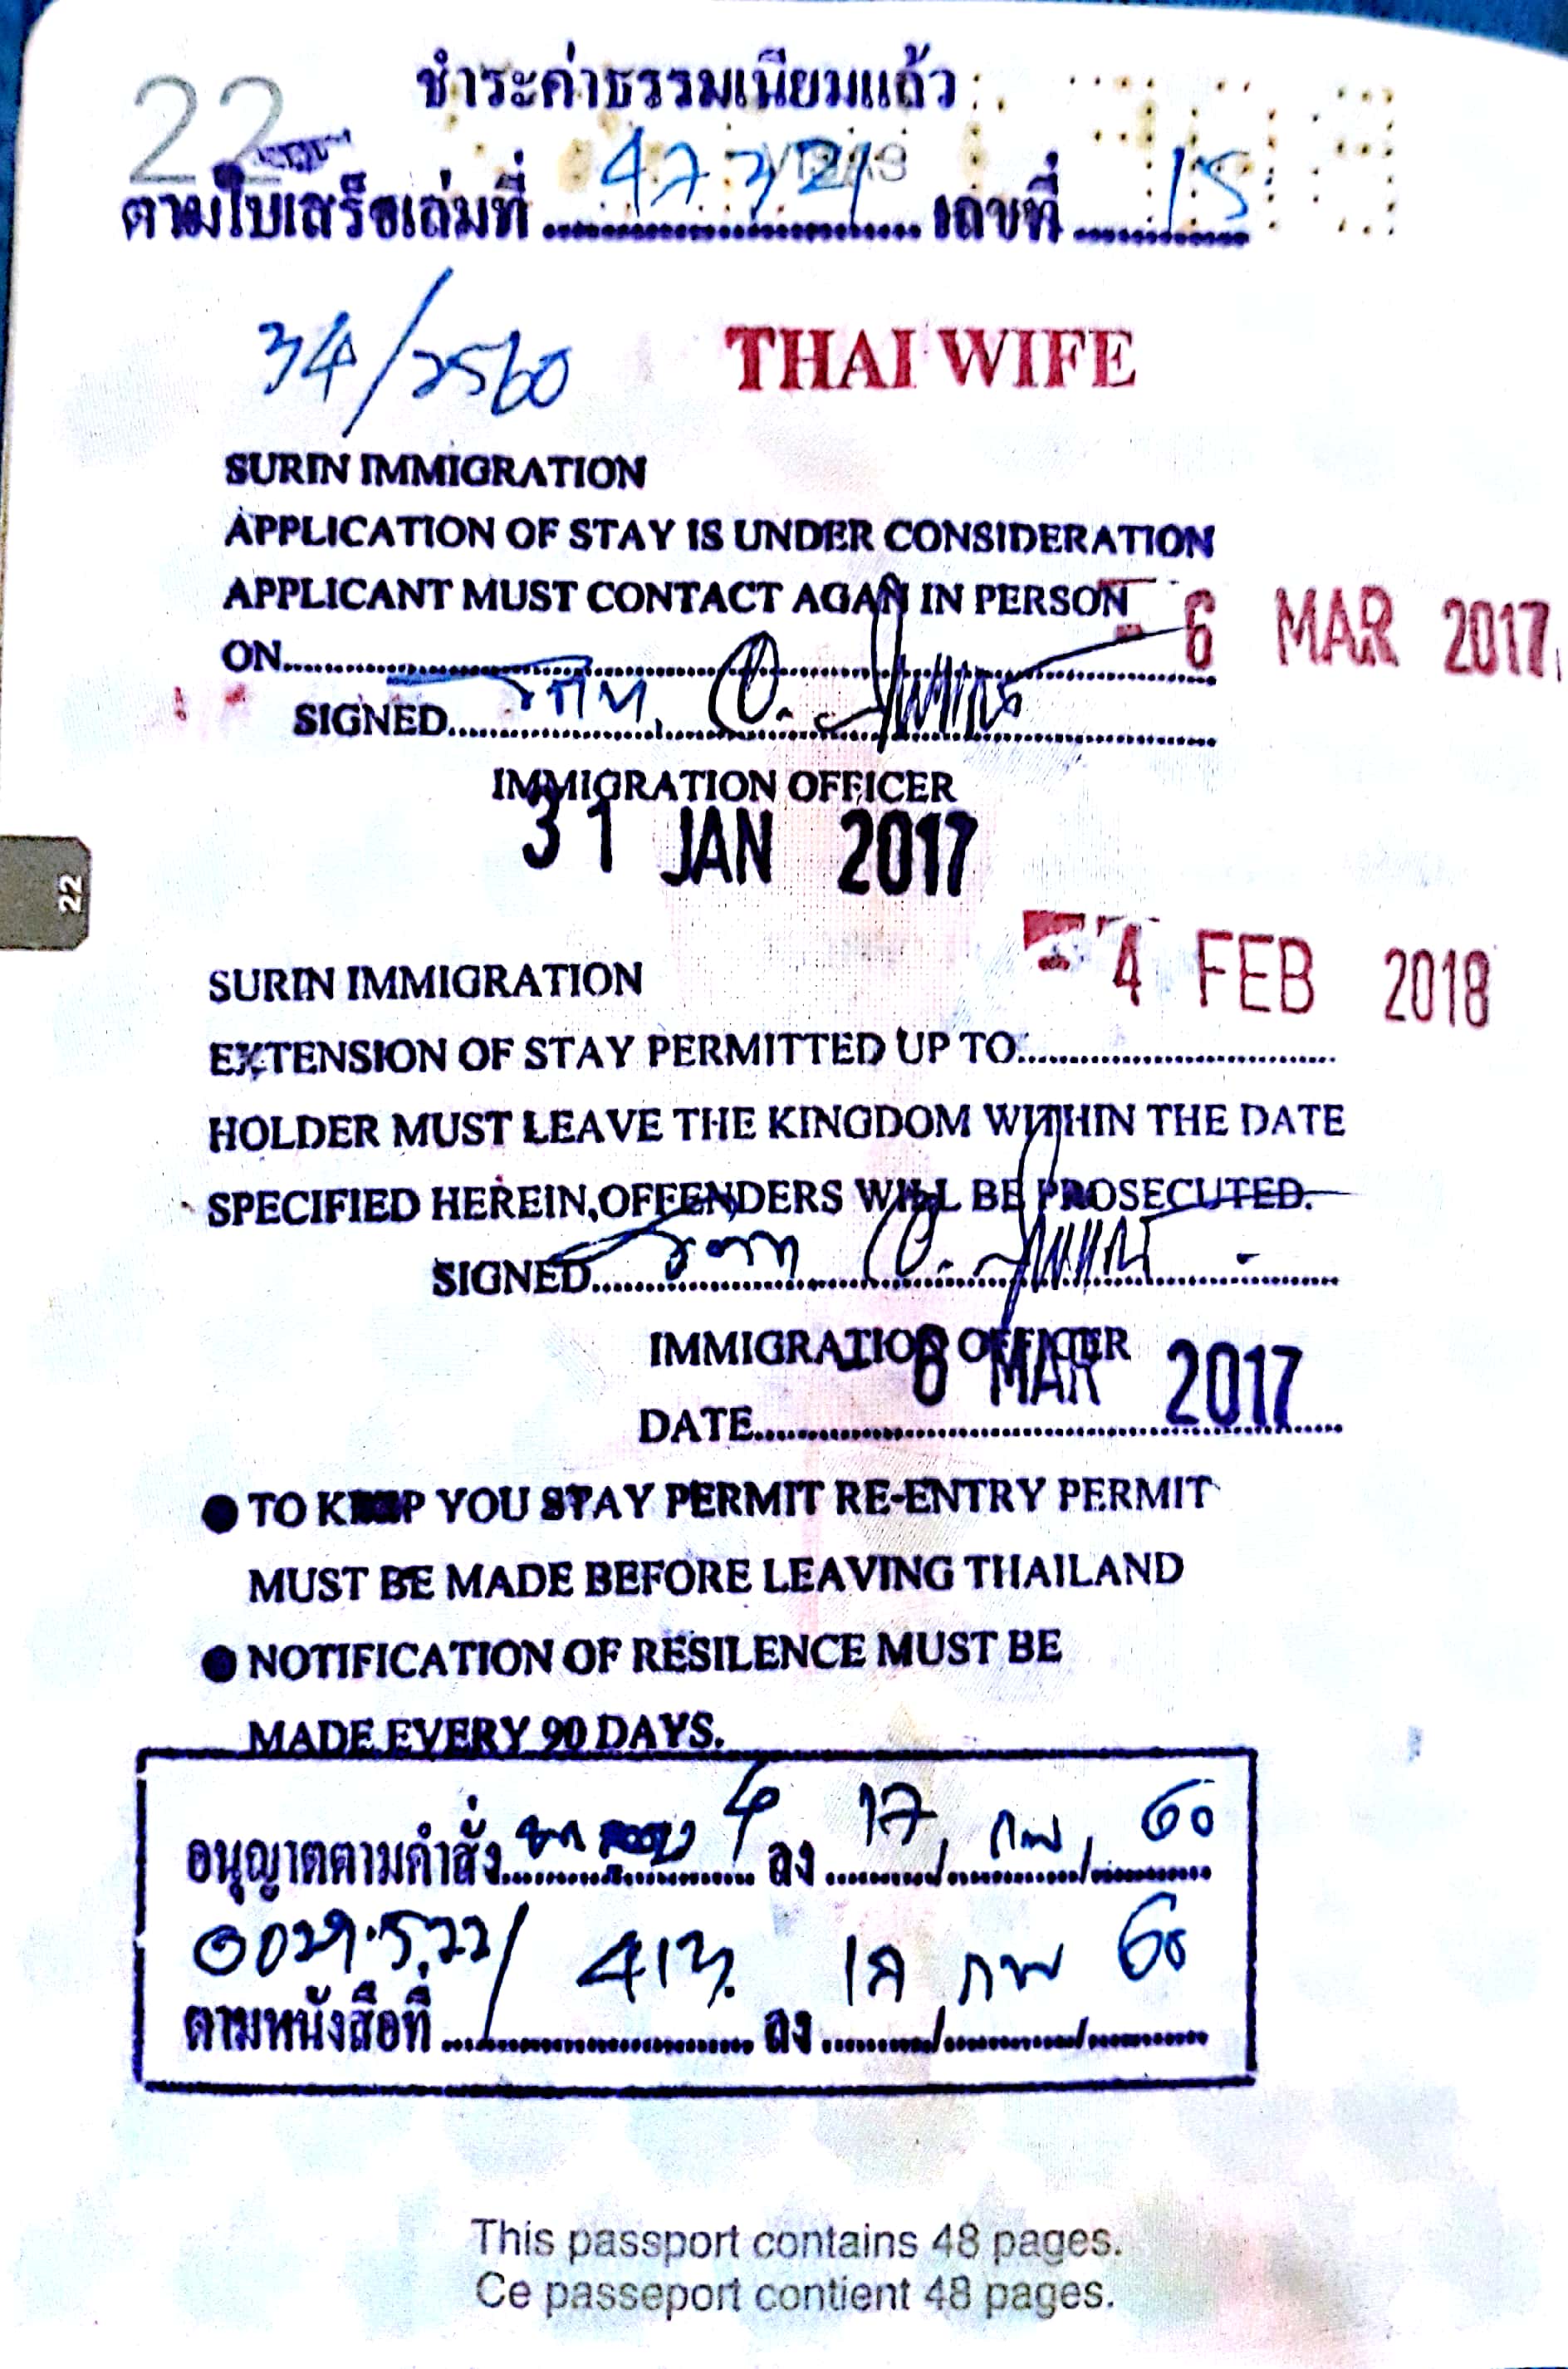 22
ชำระค่าธรรมเนียมแล้ว
ตามใบเสร็จเล่มที่ 47321 เลขที่ 15
34/2560 THAI WIFE
SURIN IMMIGRATION
APPLICATION OF STAY IS UNDER CONSIDERATION
APPLICANT MUST CONTACT AGAN IN PERSON
ON........ 6 MAR 2017
SIGNED........
IMMIGRATION OFFICER
31 JAN 2017
22
SURIN IMMIGRATION
EXTENSION OF STAY PERMITTED UP TO........ 4 FEB 2018
HOLDER MUST LEAVE THE KINGDOM WITHIN THE DATE
SPECIFIED HEREIN,OFFENDERS WILL BE PROSECUTED.
SIGNED........
IMMIGRATION OFFICER
DATE........ 6 MAR 2017
● TO KEEP YOU STAY PERMIT RE-ENTRY PERMIT
MUST BE MADE BEFORE LEAVING THAILAND
● NOTIFICATION OF RESILENCE MUST BE
MADE EVERY 90 DAYS.
อนุญาตตามคำสั่ง........ ลง 17/กพ/60
ตามหนังสือที่ ........ ลง ...../กพ/60
This passport contains 48 pages.
Ce passeport contient 48 pages.